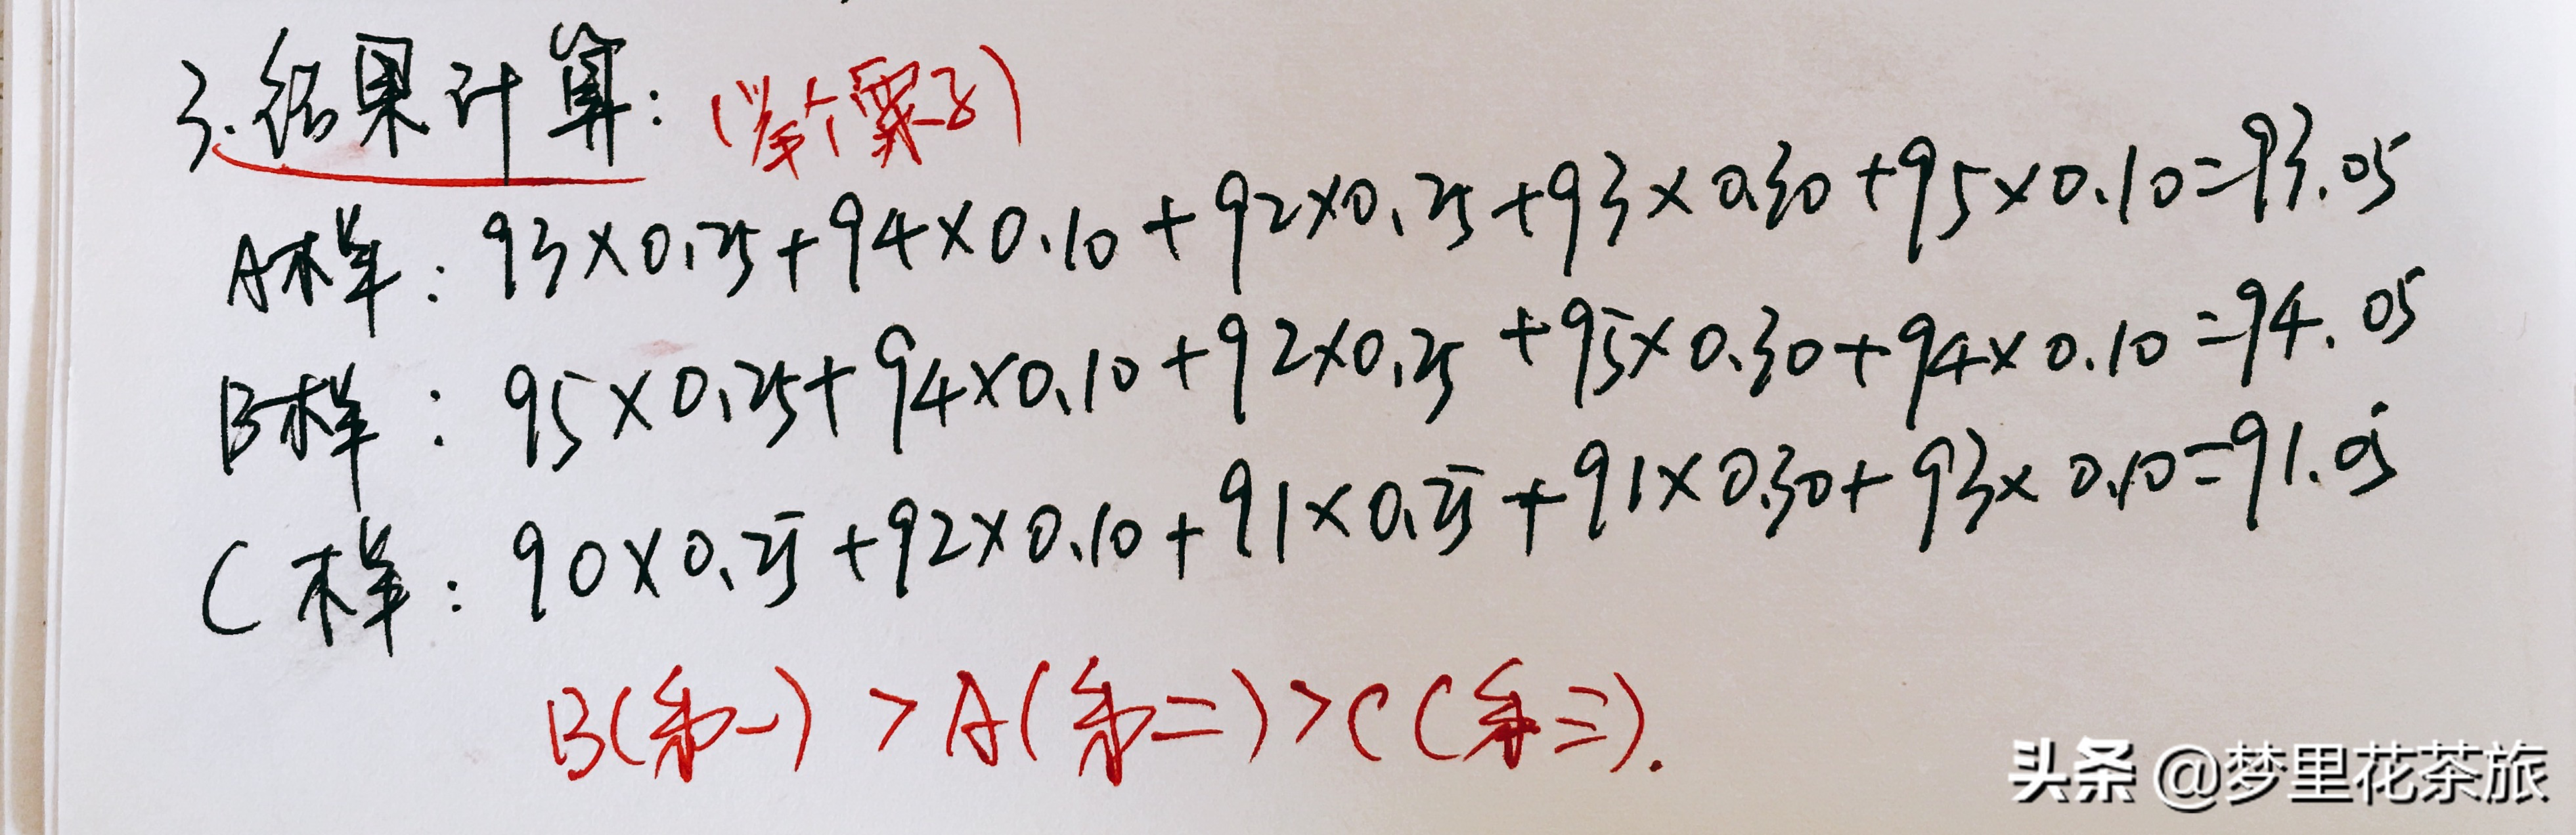 3.结果计算：(举个栗子)
A样：93×0.25+94×0.10+92×0.25+93×0.30+95×0.10=93.05
B样：95×0.25+94×0.10+92×0.25+95×0.30+94×0.10=94.05
C样：90×0.25+92×0.10+91×0.25+91×0.30+93×0.10=91.05
B(第一)>A(第二)>C(第三).
头条 @梦里花茶旅